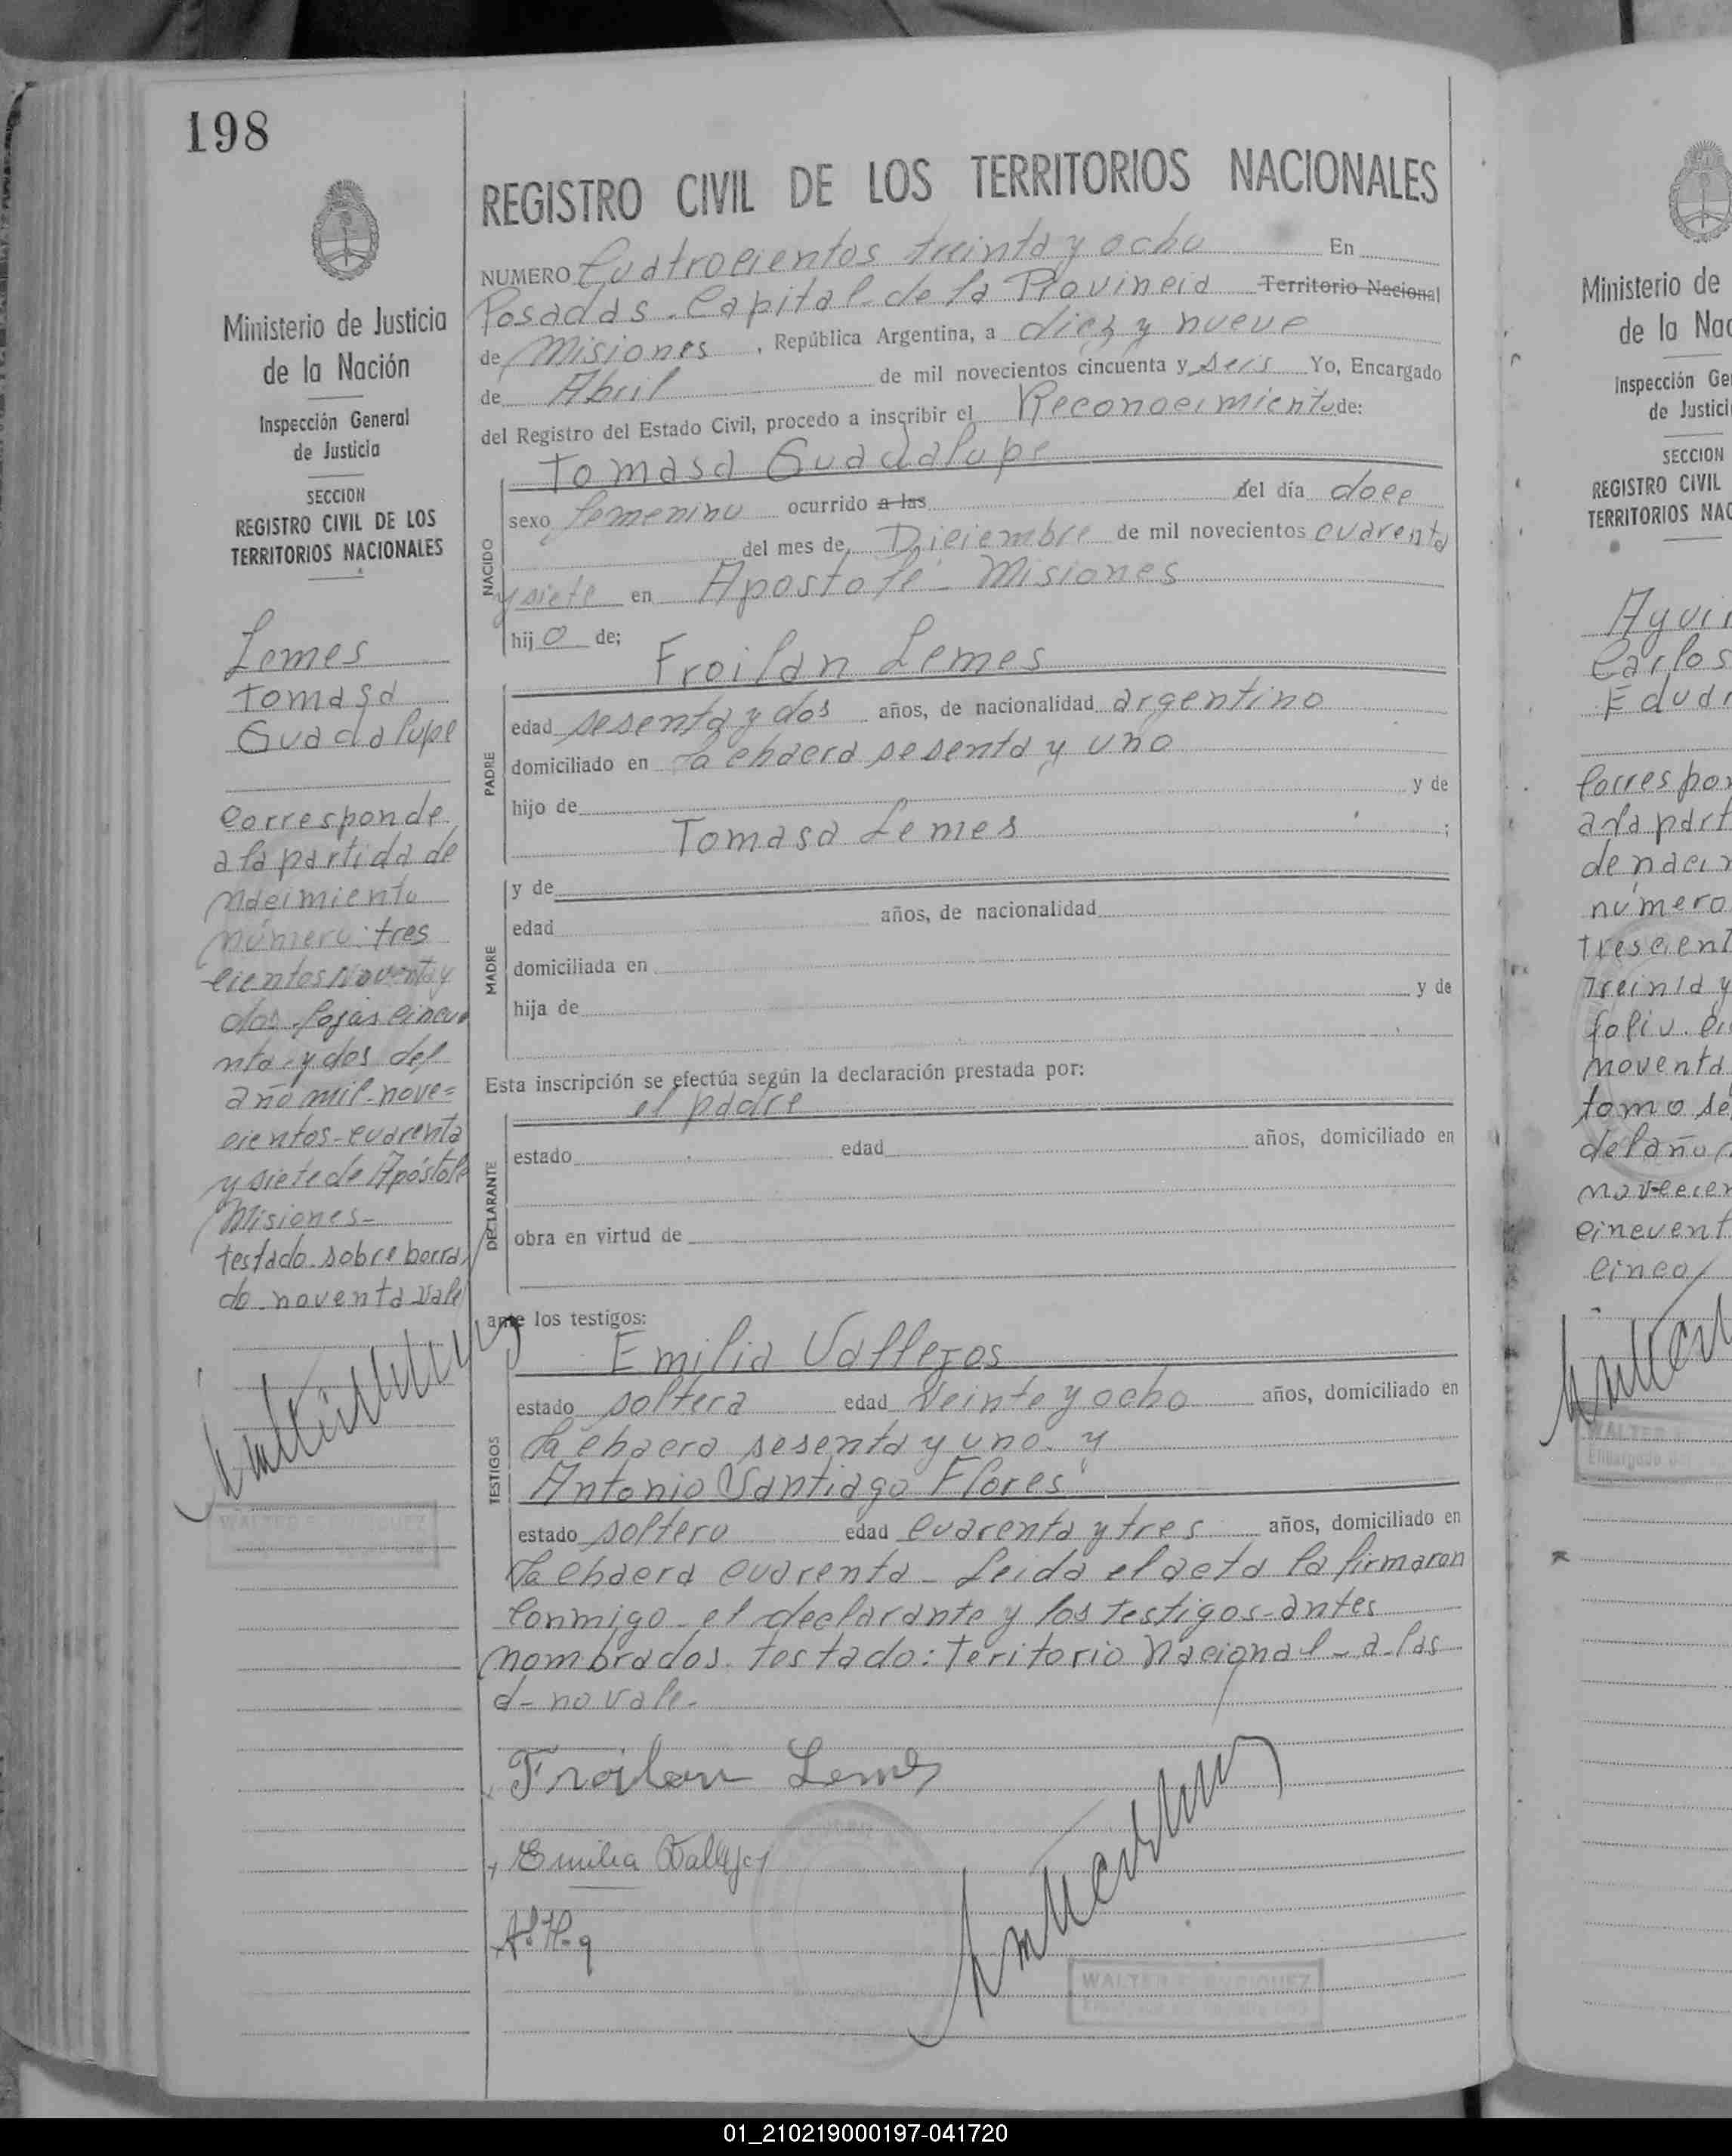 198
Ministerio de Justicia
de la Nación
Inspección General
de Justicia
SECCION
REGISTRO CIVIL DE LOS
TERRITORIOS NACIONALES
Lemes
Tomasa
Guadalupe
Corresponde
a la partida de
nacimiento
número: tres
cientos noventa y
dos fojas cincue
nta y dos del
año mil nove=
cientos cuarenta
y siete de Apóstole
Misiones-
testado sobre borra
do noventa vale
WALTER E. ENRIQUEZ
REGISTRO CIVIL DE LOS TERRITORIOS NACIONALES
NUMERO Cuatrocientos treinta y ocho En
Posadas. Capital de la Provincia Territorio Nacional
de Misiones, República Argentina, a diez y nueve
de Abril de mil novecientos cincuenta y seis Yo, Encargado
del Registro del Estado Civil, procedo a inscribir el Reconocimiento de:
Tomasa Guadalupe
NACIDO
sexo femenino ocurrido a las del día doce
del mes de Diciembre de mil novecientos cuarenta
y siete en Apostole - Misiones
hijo de;
Froilan Lemes
PADRE
edad sesenta y dos años, de nacionalidad argentino
domiciliado en la chacra sesenta y uno
hijo de y de
Tomasa Lemes ;
MADRE
y de
edad años, de nacionalidad
domiciliada en
hija de y de
Esta inscripción se efectúa según la declaración prestada por:
el padre
DECLARANTE
estado edad años, domiciliado en
obra en virtud de
ante los testigos:
Emilia Vallejos
TESTIGOS
estado soltera edad veinte y ocho años, domiciliado en
la chacra sesenta y uno. y
Antonio Santiago Flores
estado soltero edad cuarenta y tres años, domiciliado en
la chacra cuarenta - Leida el acta la firmaron
conmigo el declarante y los testigos antes
nombrados. testado: Teritorio Nacional - a las
d- no vale.
Froilan Lemes
Emilia Vallejos
WALTER E. ENRIQUEZ
Ministerio de
de la Nac
Inspección Ge
de Justici
SECCION
REGISTRO CIVIL
TERRITORIOS NAC
Carlos
Correspon
a la part
de naci
número
trescient
treinta y
folio
noventa
tomo se
del año
novecien
cincuent
cinco
WALTER
Encargado del
01_210219000197-041720